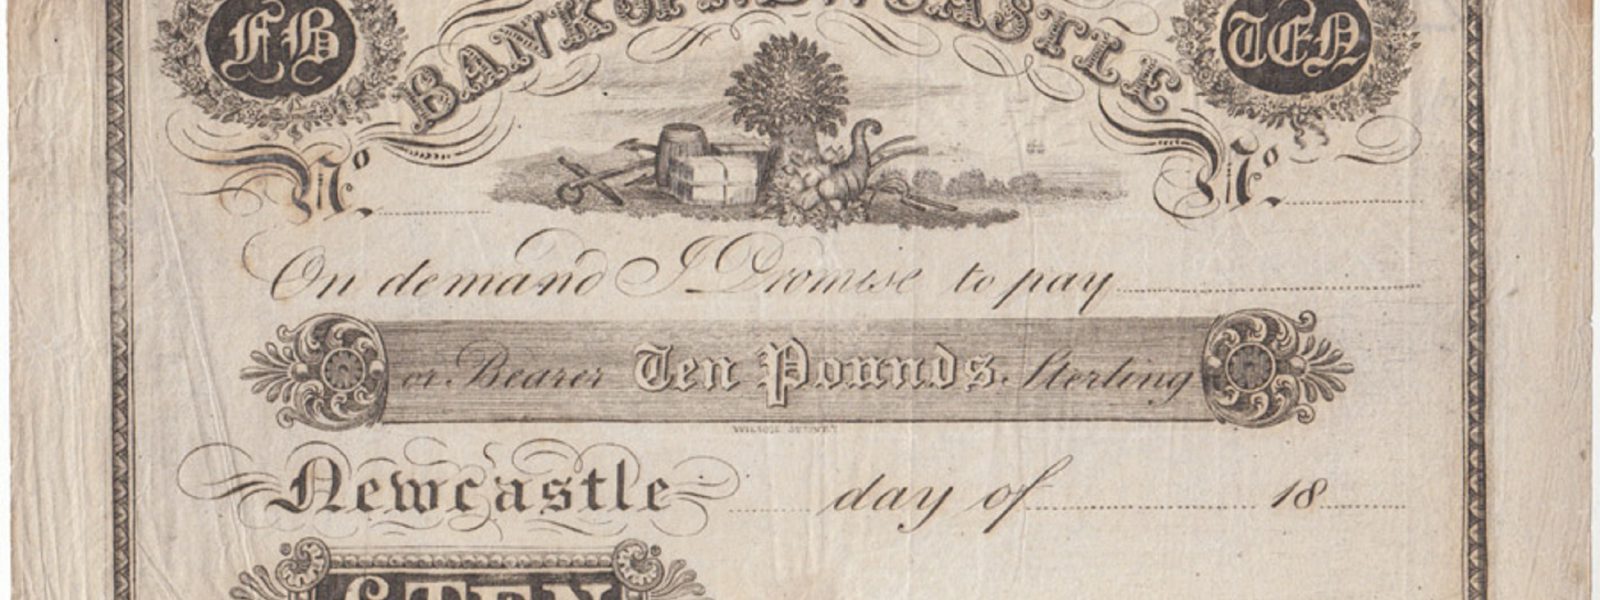 FB
BANK OF NEWCASTLE
TEN
No.
No.
On demand I Promise to pay
or Bearer Ten Pounds Sterling
WILSON SYDNEY
Newcastle day of 18
£TEN